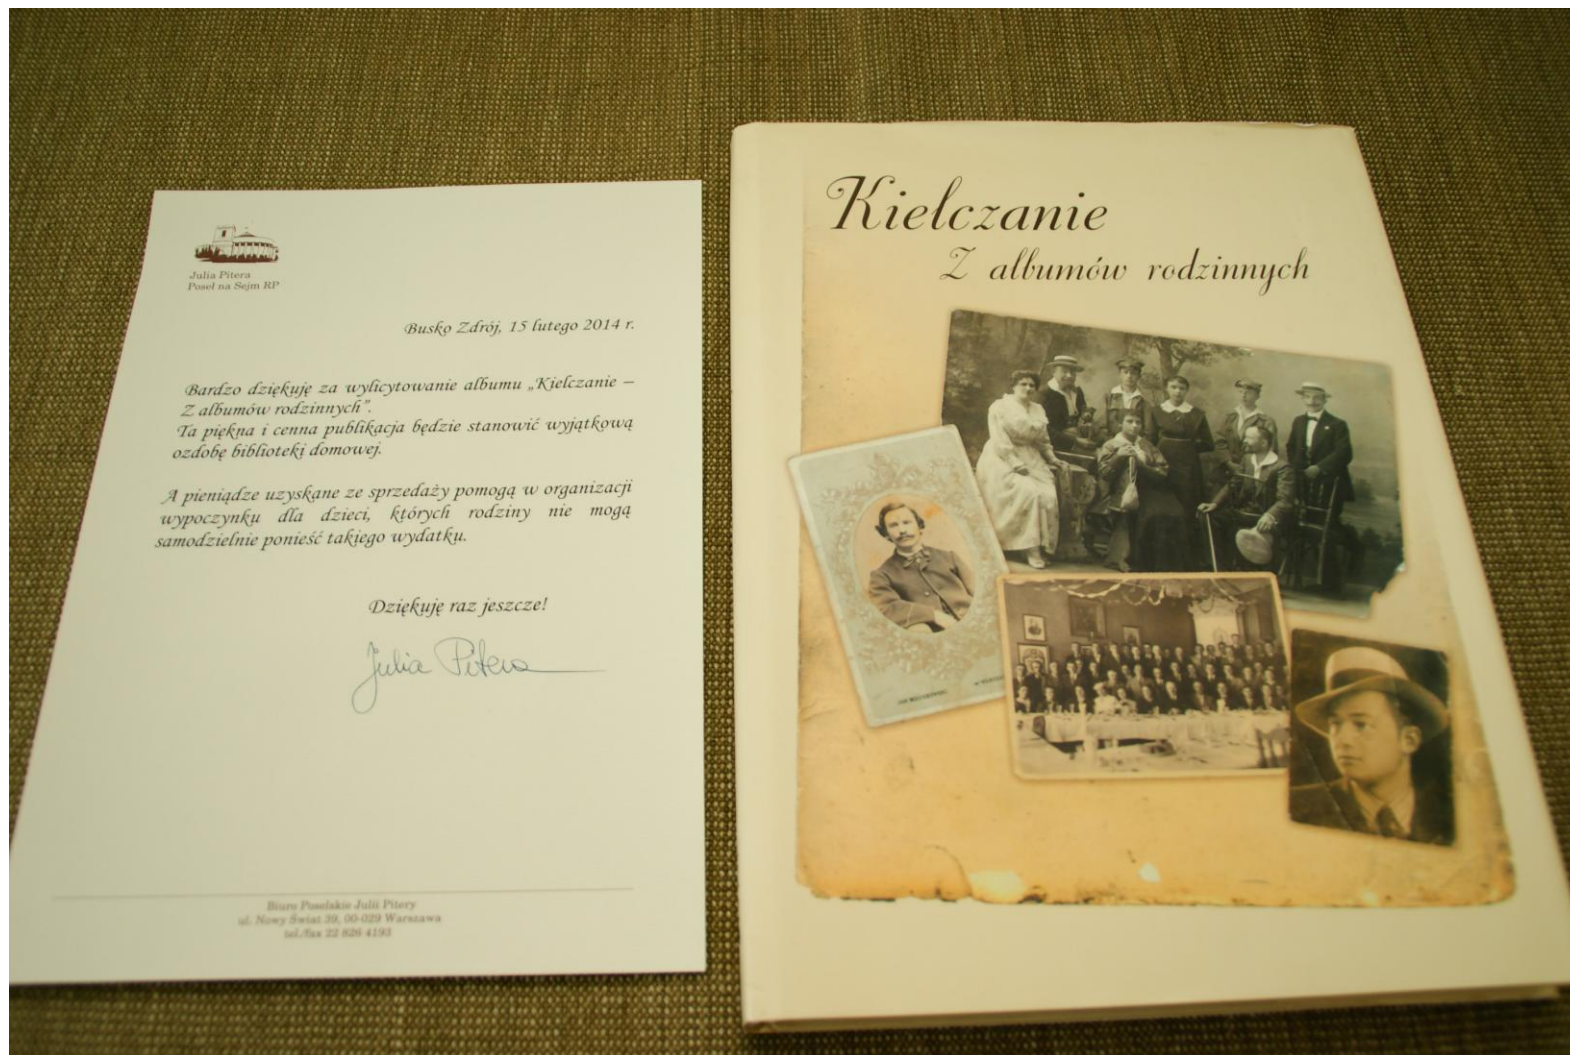 Julia Pitera
Poseł na Sejm RP
Busko Zdrój, 15 lutego 2014 r.
Bardzo dziękuję za wylicytowanie albumu „Kielczanie –
Z albumów rodzinnych”.
Ta piękna i cenna publikacja będzie stanowić wyjątkową
ozdobę biblioteki domowej.
A pieniądze uzyskane ze sprzedaży pomogą w organizacji
wypoczynku dla dzieci, których rodziny nie mogą
samodzielnie ponieść takiego wydatku.
Dziękuję raz jeszcze!
Julia Pitera
Biuro Poselskie Julii Pitery
ul. Nowy Świat 39, 00-029 Warszawa
tel./fax 22 826 4193
Kielczanie
Z albumów rodzinnych